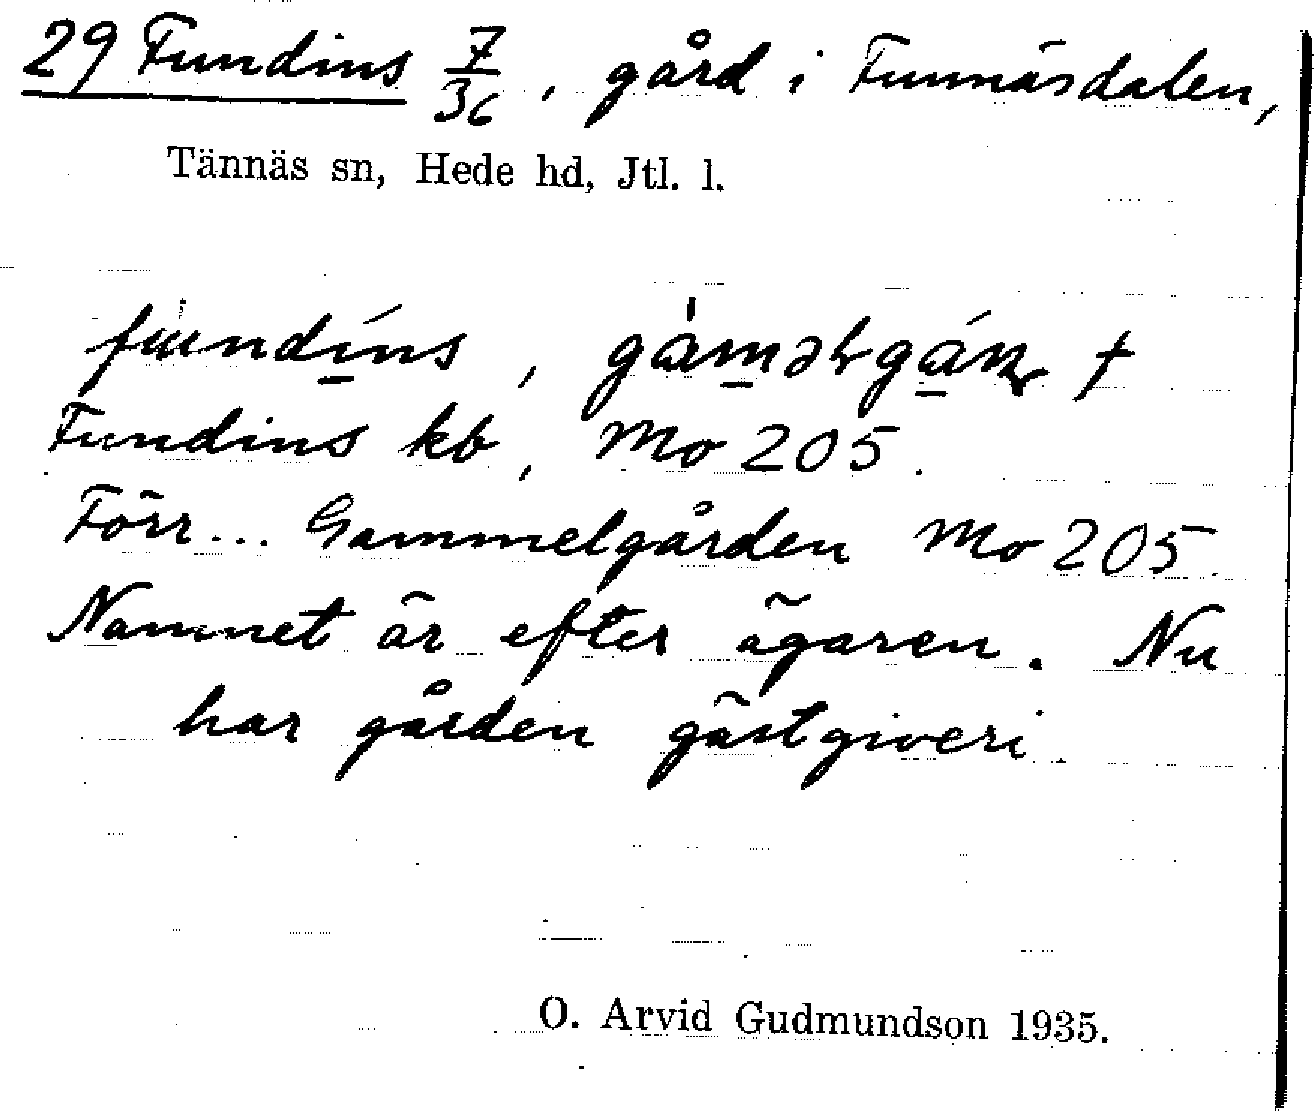 29 Fundins 7/36, gård i Funnäsdalen,
Tännäs sn, Hede hd, Jtl. l.
fundíns, †
Fundins kb, Mo 205.
Förr... Gammelgården Mo 205.
Namnet är efter ägaren. Nu
har gården gästgiveri.
O. Arvid Gudmundson 1935.